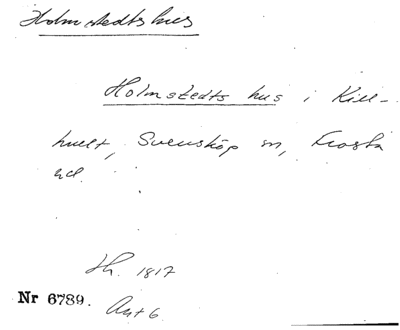 Holmstedts hus
Holmstedts hus i Kill-
hult, Svensköp sn, Frosta
hd.
Hh. 1817
Nr 6789.
Ant 6